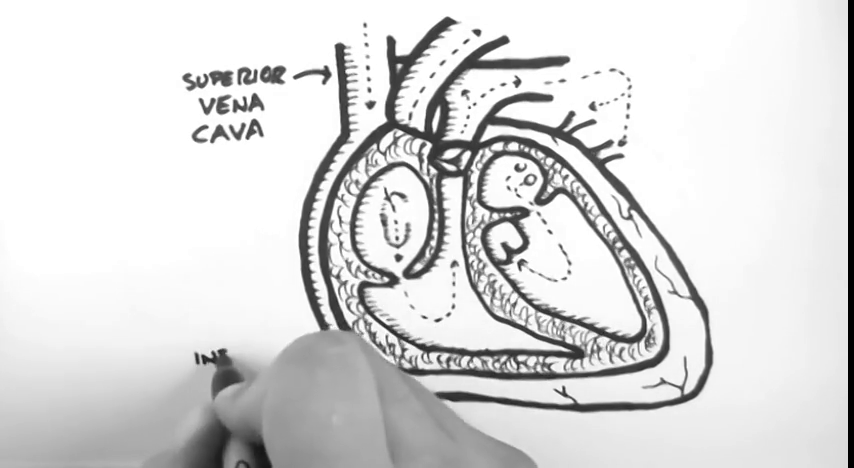 SUPERIOR
VENA
CAVA
INF